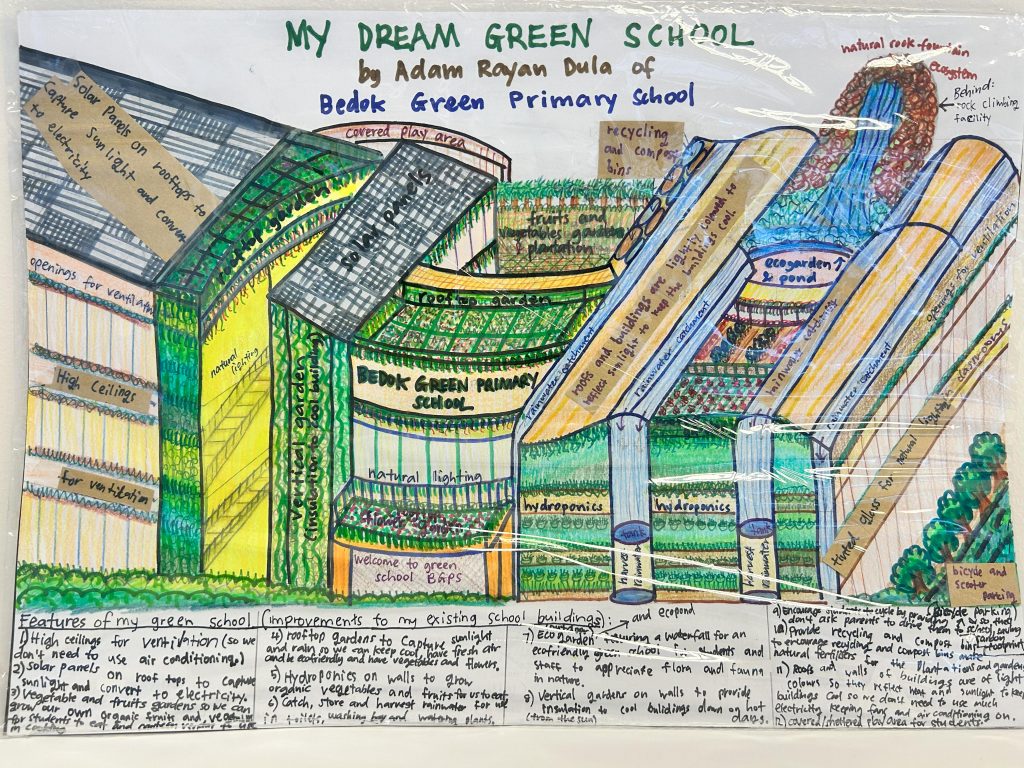 MY DREAM GREEN SCHOOL
by Adam Rayan Dula of
Bedok Green Primary School
natural rook fountain
ecosystem
Behind:
rock climbing
facility
Solar Panels on rooftops to
capture sunlight and
to electricity
covered play area
recycling
and compost
bins
rooftop garden
solar panels
fruits and
vegetables gardens
plantation
ecogarden
& pond
openings for ventilation
rooftop garden
natural lighting
High Ceilings
for ventilation
Vertical garden
(insulation to cool building)
BEDOK GREEN PRIMARY
SCHOOL
natural lighting
welcome to green
school BGPS
rainwater catchment
roofs and buildings are lightly coloured to
reflect sunlight to keep the buildings cool.
rainwater catchment
rainwater catchment
openings for ventilation
tinted glass for natural
hydroponics
hydroponics
tank
harvest
rainwater
tank
harvest
rainwater
bicycle and
scooter
parking
Features of my green school (improvements to my existing school buildings):
1) High ceilings for ventilation (so we
don't need to use air conditioning.)
2) Solar panels on roof tops to capture
sunlight and convert to electricity.
3) Vegetable and fruits gardens so we can
grow our own organic fruits and
for students to eat and
in cooking
4) rooftop gardens to capture sunlight
and rain so we can keep cool, have fresh air
and be ecofriendly and have vegetables and flowers.
5) Hydroponics on walls to grow
organic vegetables and fruits for us to eat.
6) Catch, store and harvest rainwater for use
in toilets, washing bay and watering plants.
and ecopond
7) Eco garden featuring a waterfall for an
ecofriendly green school for students and
staff to appreciate flora and fauna
in nature.
8) Vertical gardens on walls to provide
insulation to cool buildings down on hot
days.
(from the sun)
9) Encourage students to cycle by (bicycle parking)
don't ask parents to drive them to school, saving
carbon footprint
10) Provide recycling and compost bins
to encourage recycling and compost
natural fertilizers for the plantations and gardens
11) Roofs and walls of buildings are of light
colours so they reflect heat and sunlight to keep
buildings cool so we don't need to use much
electricity keeping fans and air conditioning on.
12) covered/sheltered play area for students.